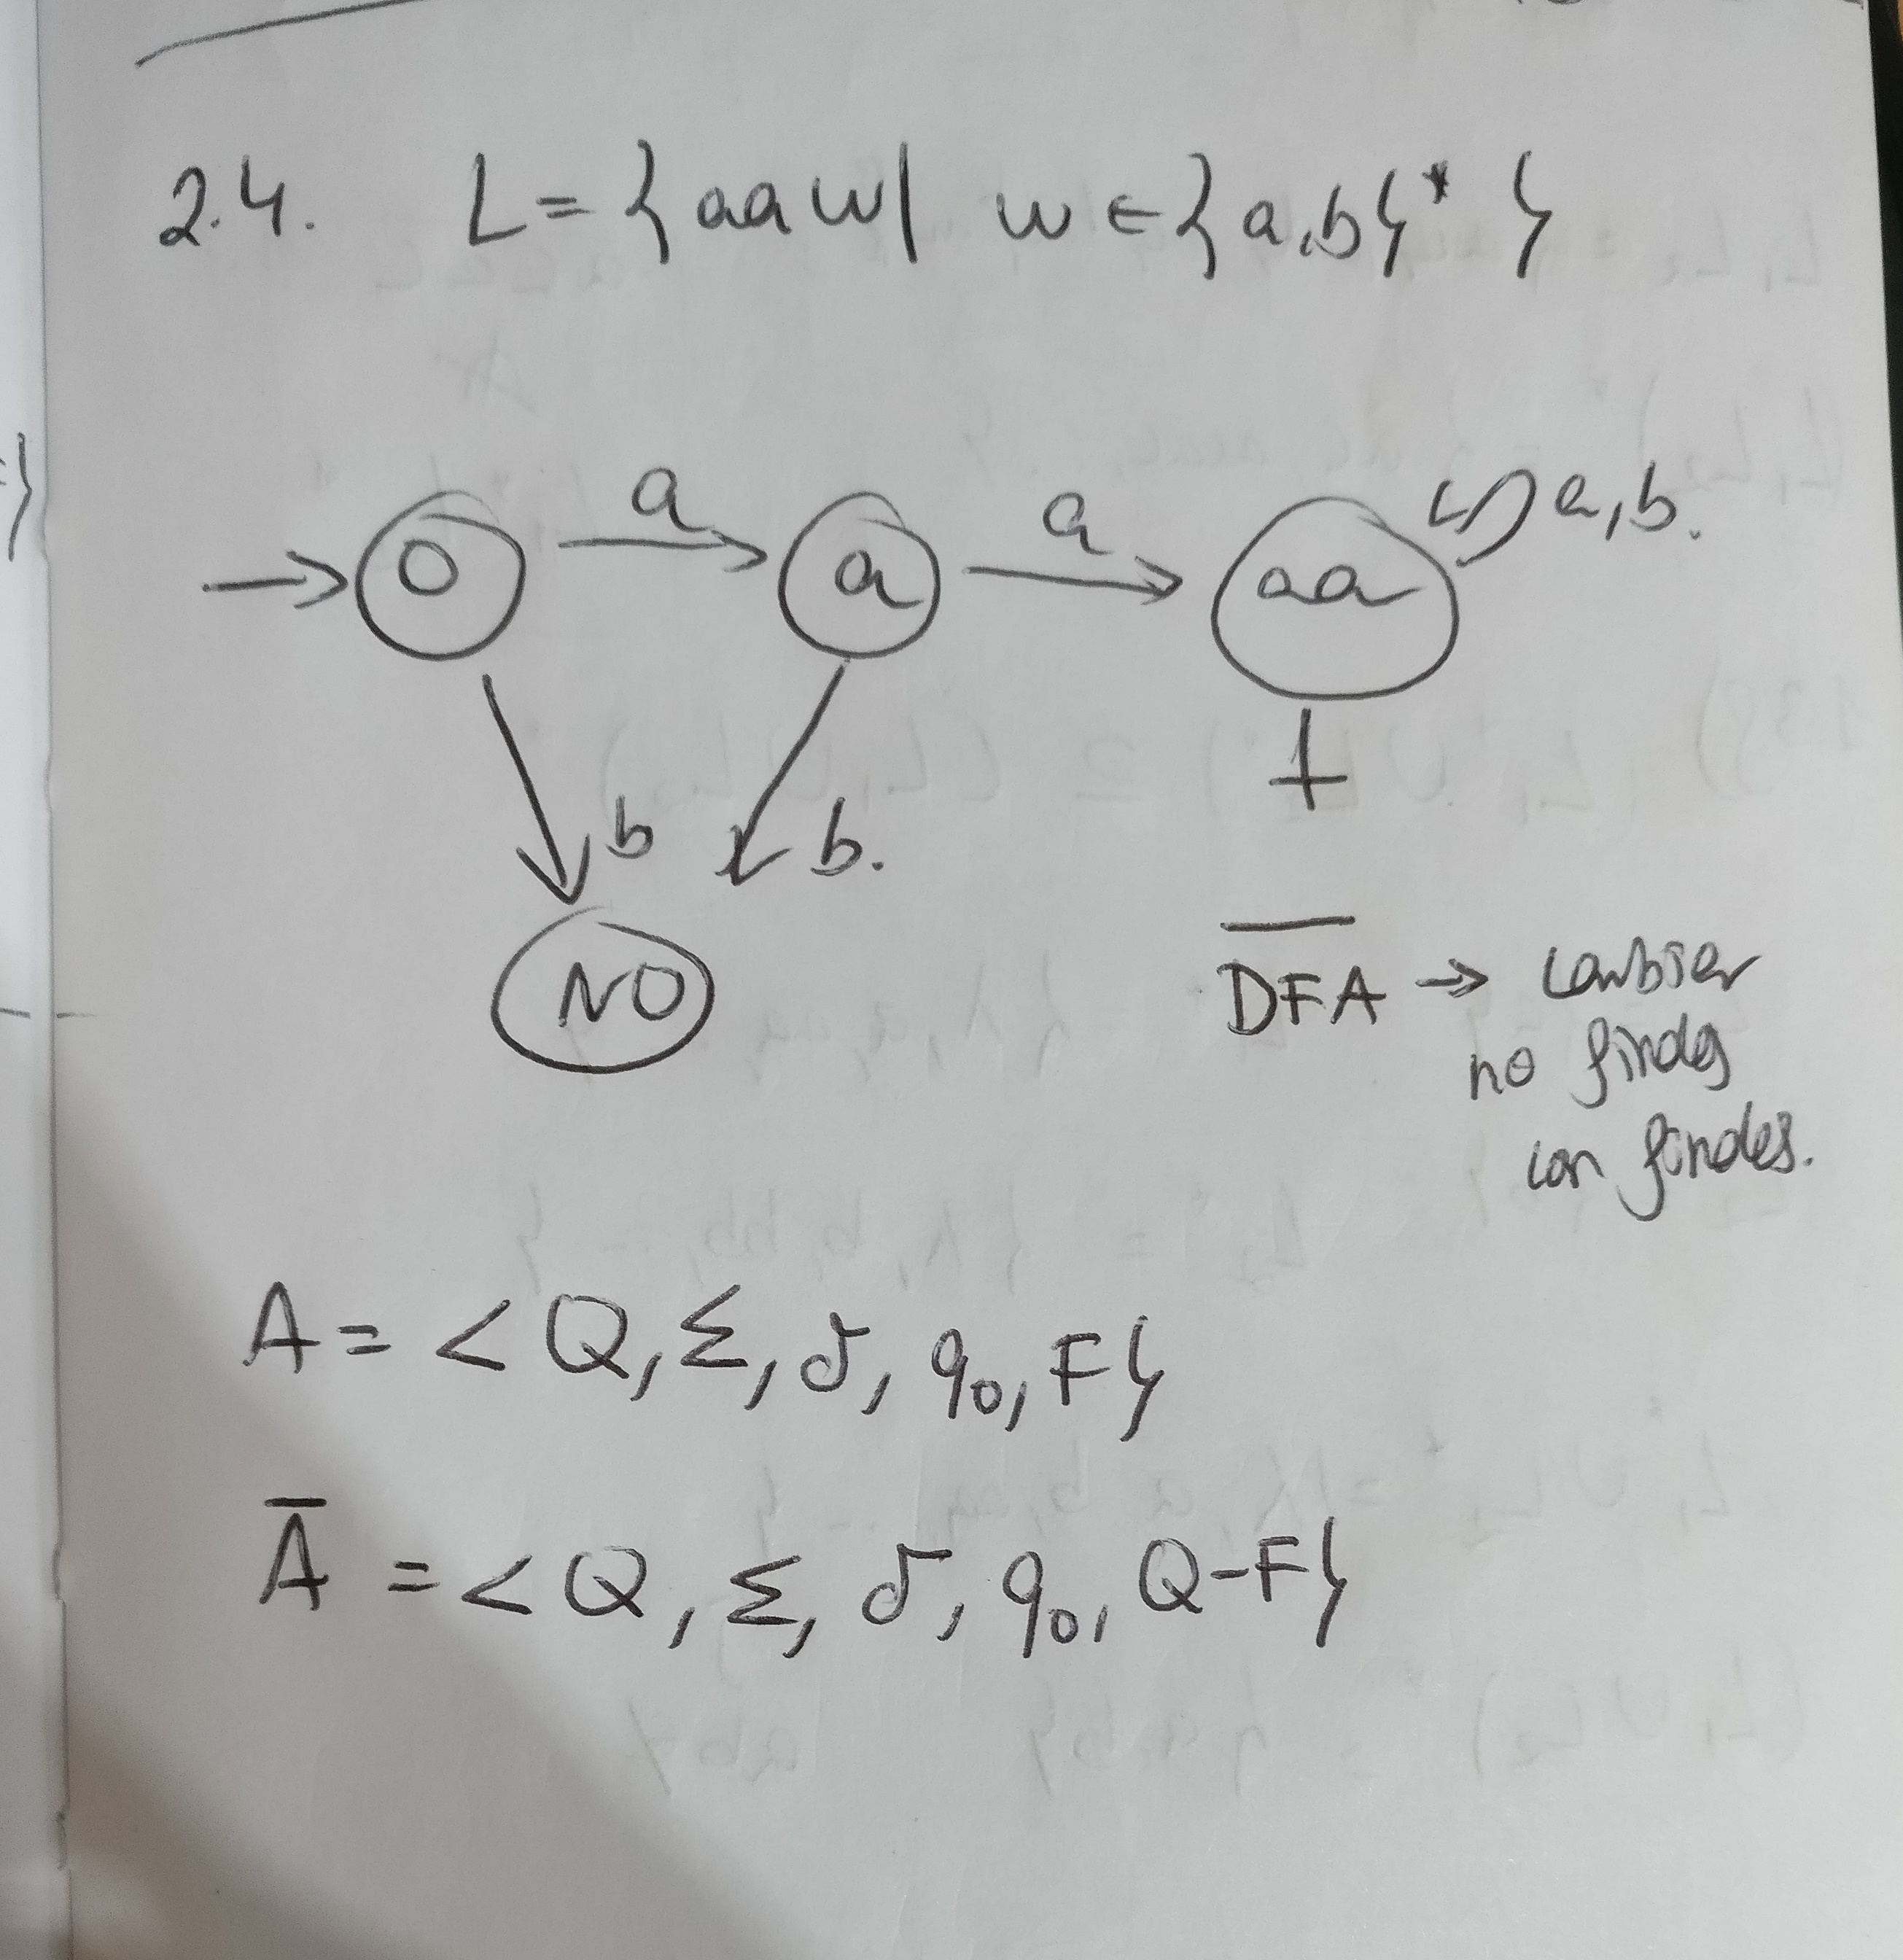 2.4. L = { aaw | w ∈ { a,b }* }
a a a,b.
0 a aa
+
b b.
NO
D̅F̅A̅ → cambiar
no finales
con finales.
A = < Q, Σ, δ, q₀, F }
A̅ = < Q, Σ, δ, q₀, Q-F }